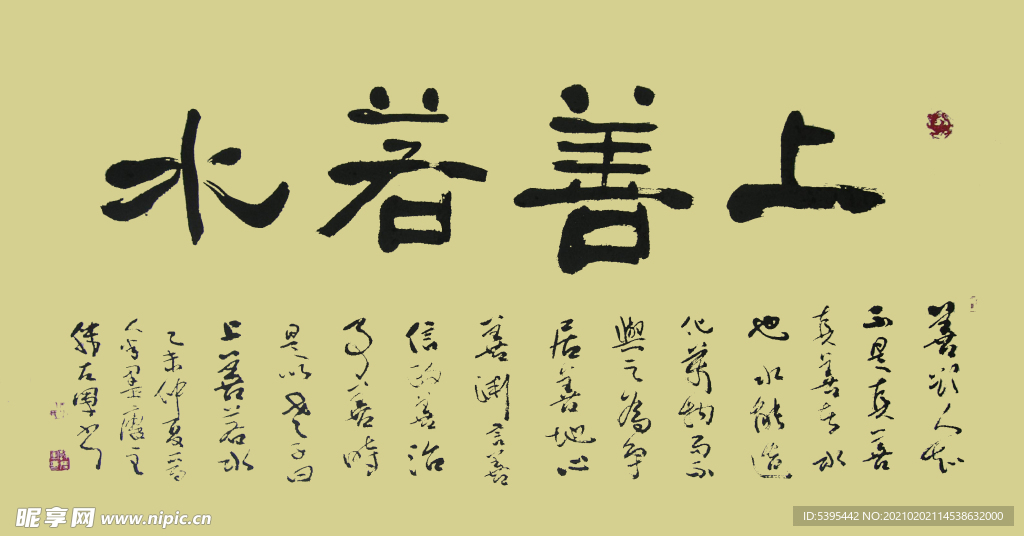 上善若水
善欲人知
不是真善
真善者水
也水能造
化萬物而不
與之為爭
居善地心
善渊言善
信政善治
事善能時
是以老子曰
上善若水
乙未仲夏
昵享网 www.nipic.cn
ID:5395442 NO:20210202114538632000